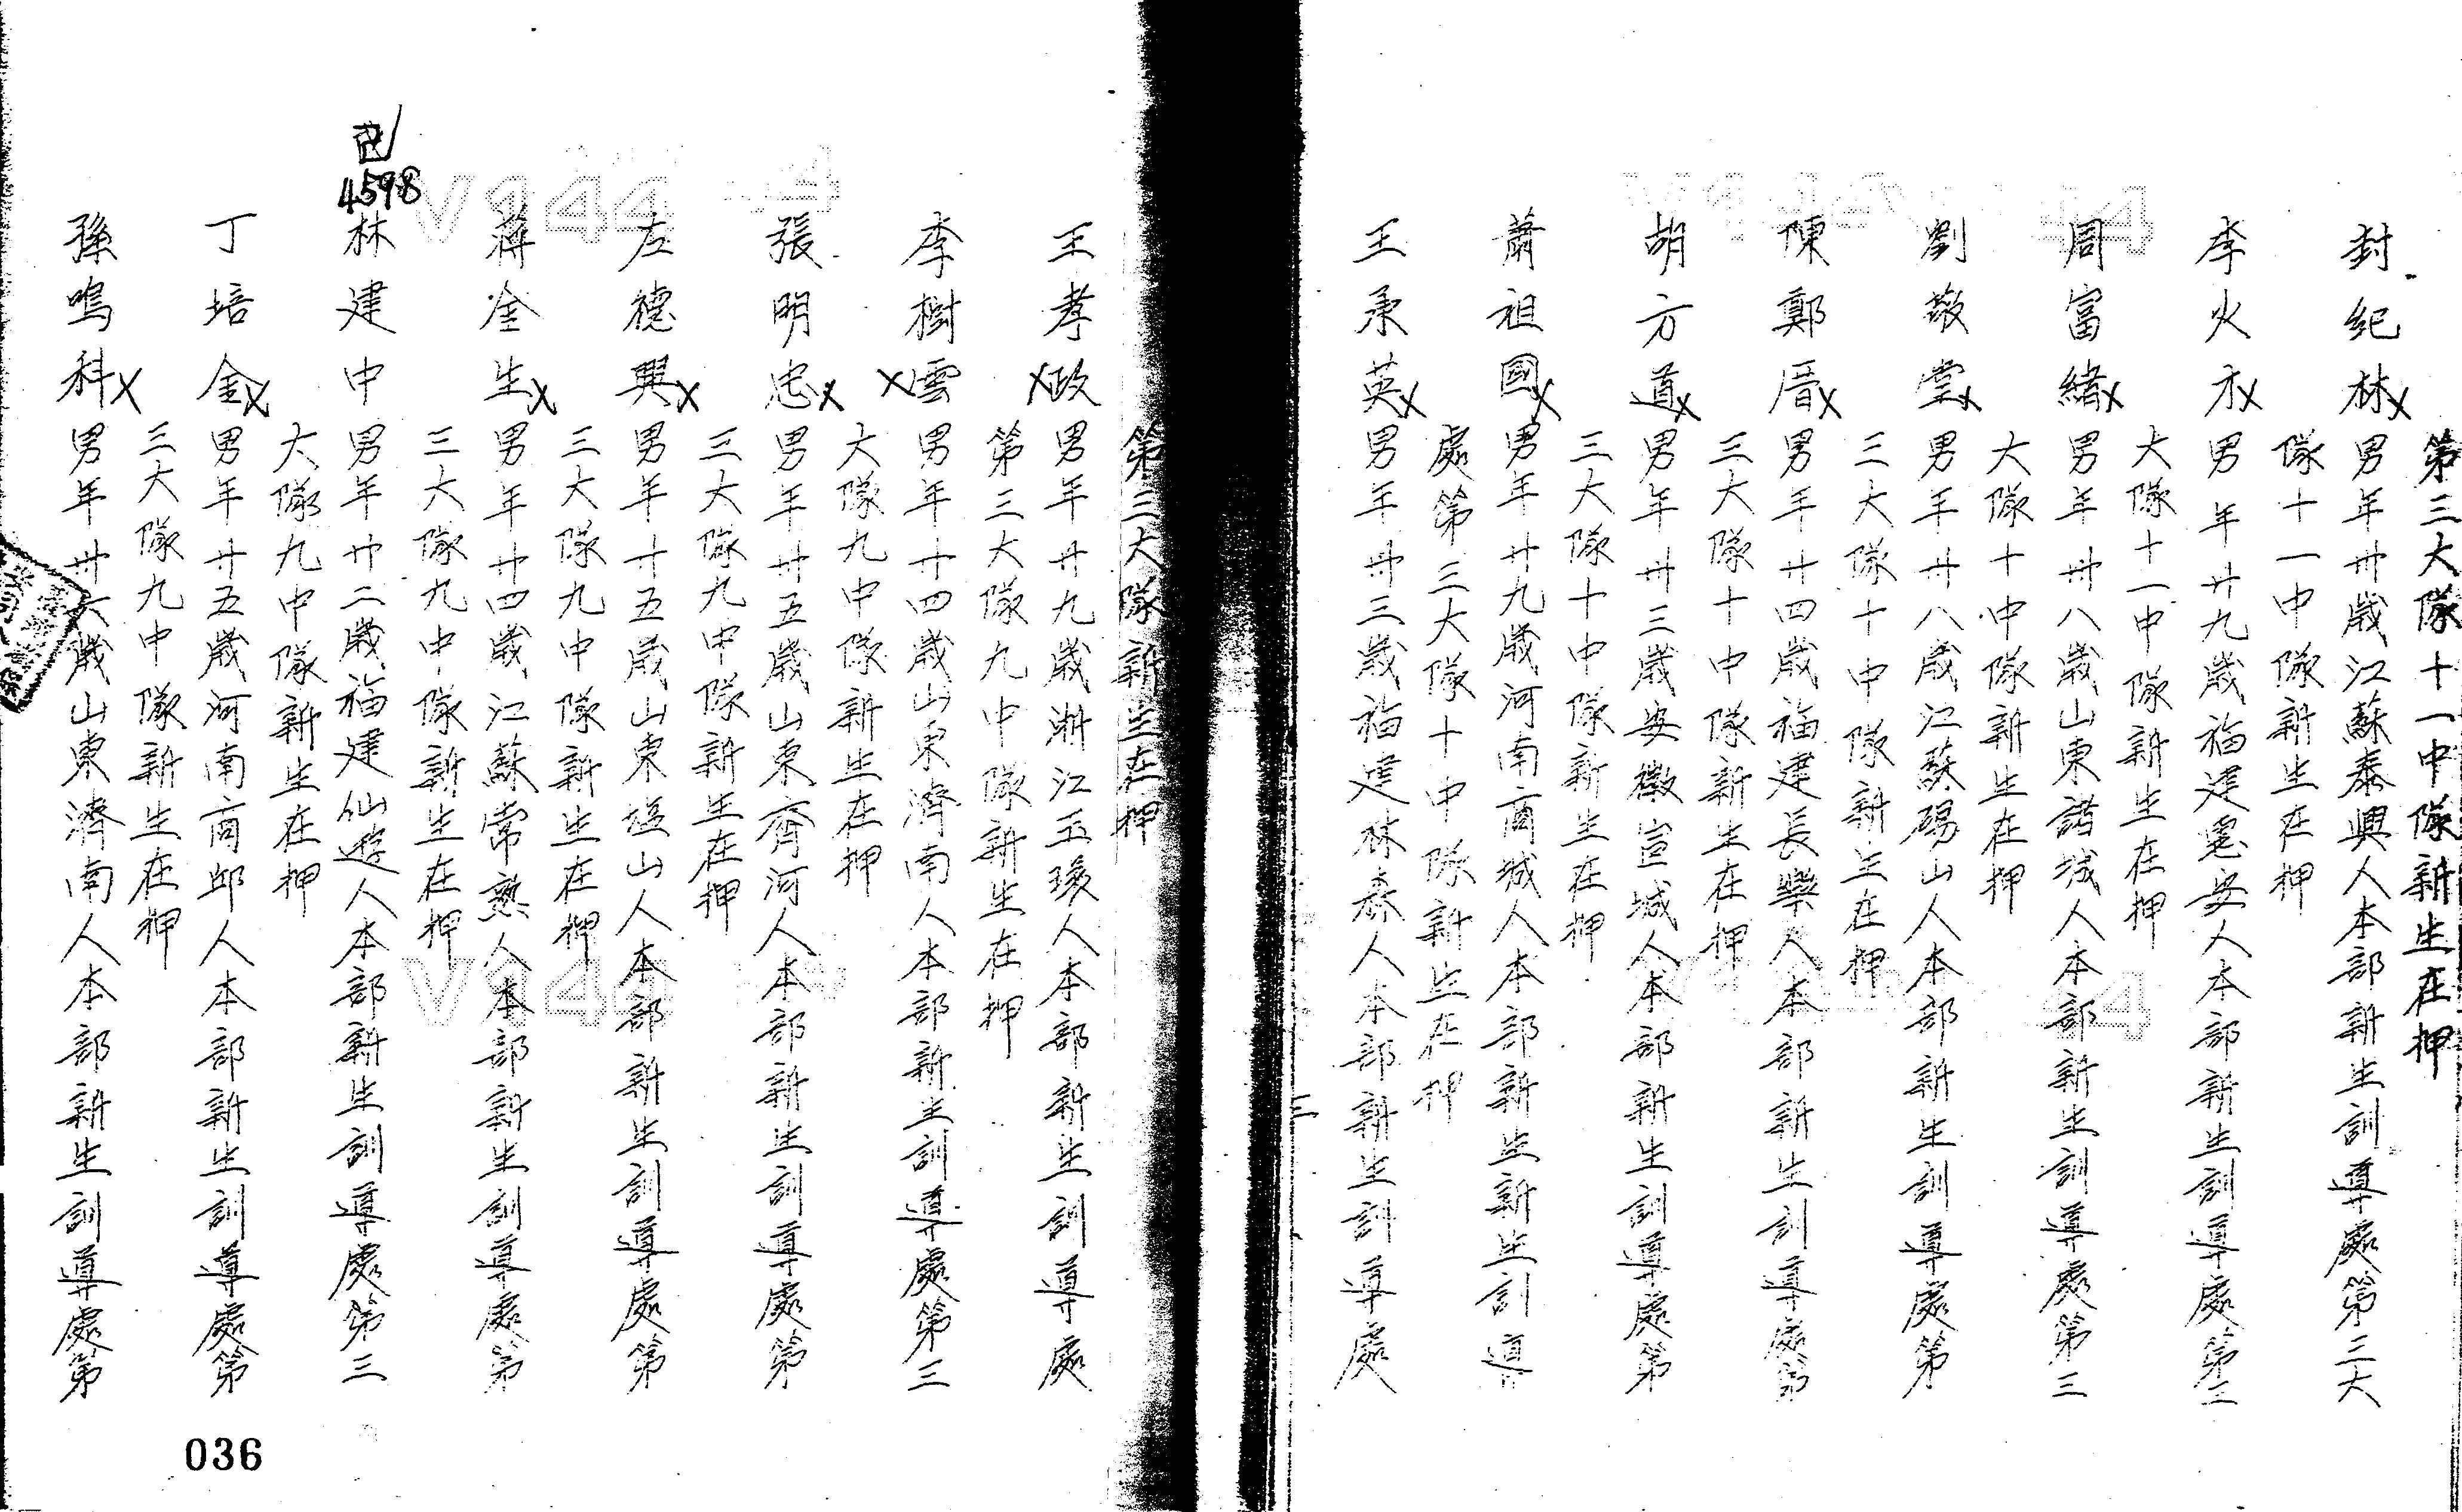 第三大隊十一中隊新生在押
封紀林 男年卅歲江蘇泰興人本部新生訓導處第三大
隊十一中隊新生在押
李火 男年廿九歲福建惠安人本部新生訓導處第三
大隊十一中隊新生在押
周富緒 男年卅八歲山東諸城人本部新生訓導處第三
大隊十中隊新生在押
劉敬堂 男年廿八歲江蘇碭山人本部新生訓導處第
三大隊十中隊新生在押
陳鄭 男年廿四歲福建長樂人本部新生訓導處第
三大隊十中隊新生在押
胡方道 男年卅三歲安徽宣城人本部新生訓導處第
三大隊十中隊新生在押
蕭祖國 男年廿九歲河南商城人本部新生新生訓導
處第三大隊十中隊新生在押
王承英 男年卅三歲福建林森人本部新生訓導處
三
第三大隊新生在押
王孝政 男年廿九歲浙江玉環人本部新生訓導處
第三大隊九中隊新生在押
李樹雲 男年廿四歲山東濟南人本部新生訓導處第三
大隊九中隊新生在押
張明忠 男年廿五歲山東齊河人本部新生訓導處第
三大隊九中隊新生在押
左德興 男年廿五歲山東塩山人本部新生訓導處第
三大隊九中隊新生在押
蔣金生 男年廿四歲江蘇常熟人本部新生訓導處第
三大隊九中隊新生在押
4598
林建中 男年卅二歲福建仙遊人本部新生訓導處第三
大隊九中隊新生在押
丁培金 男年廿五歲河南商邱人本部新生訓導處第
三大隊九中隊新生在押
孫鳴科 男年卅六歲山東濟南人本部新生訓導處第
036